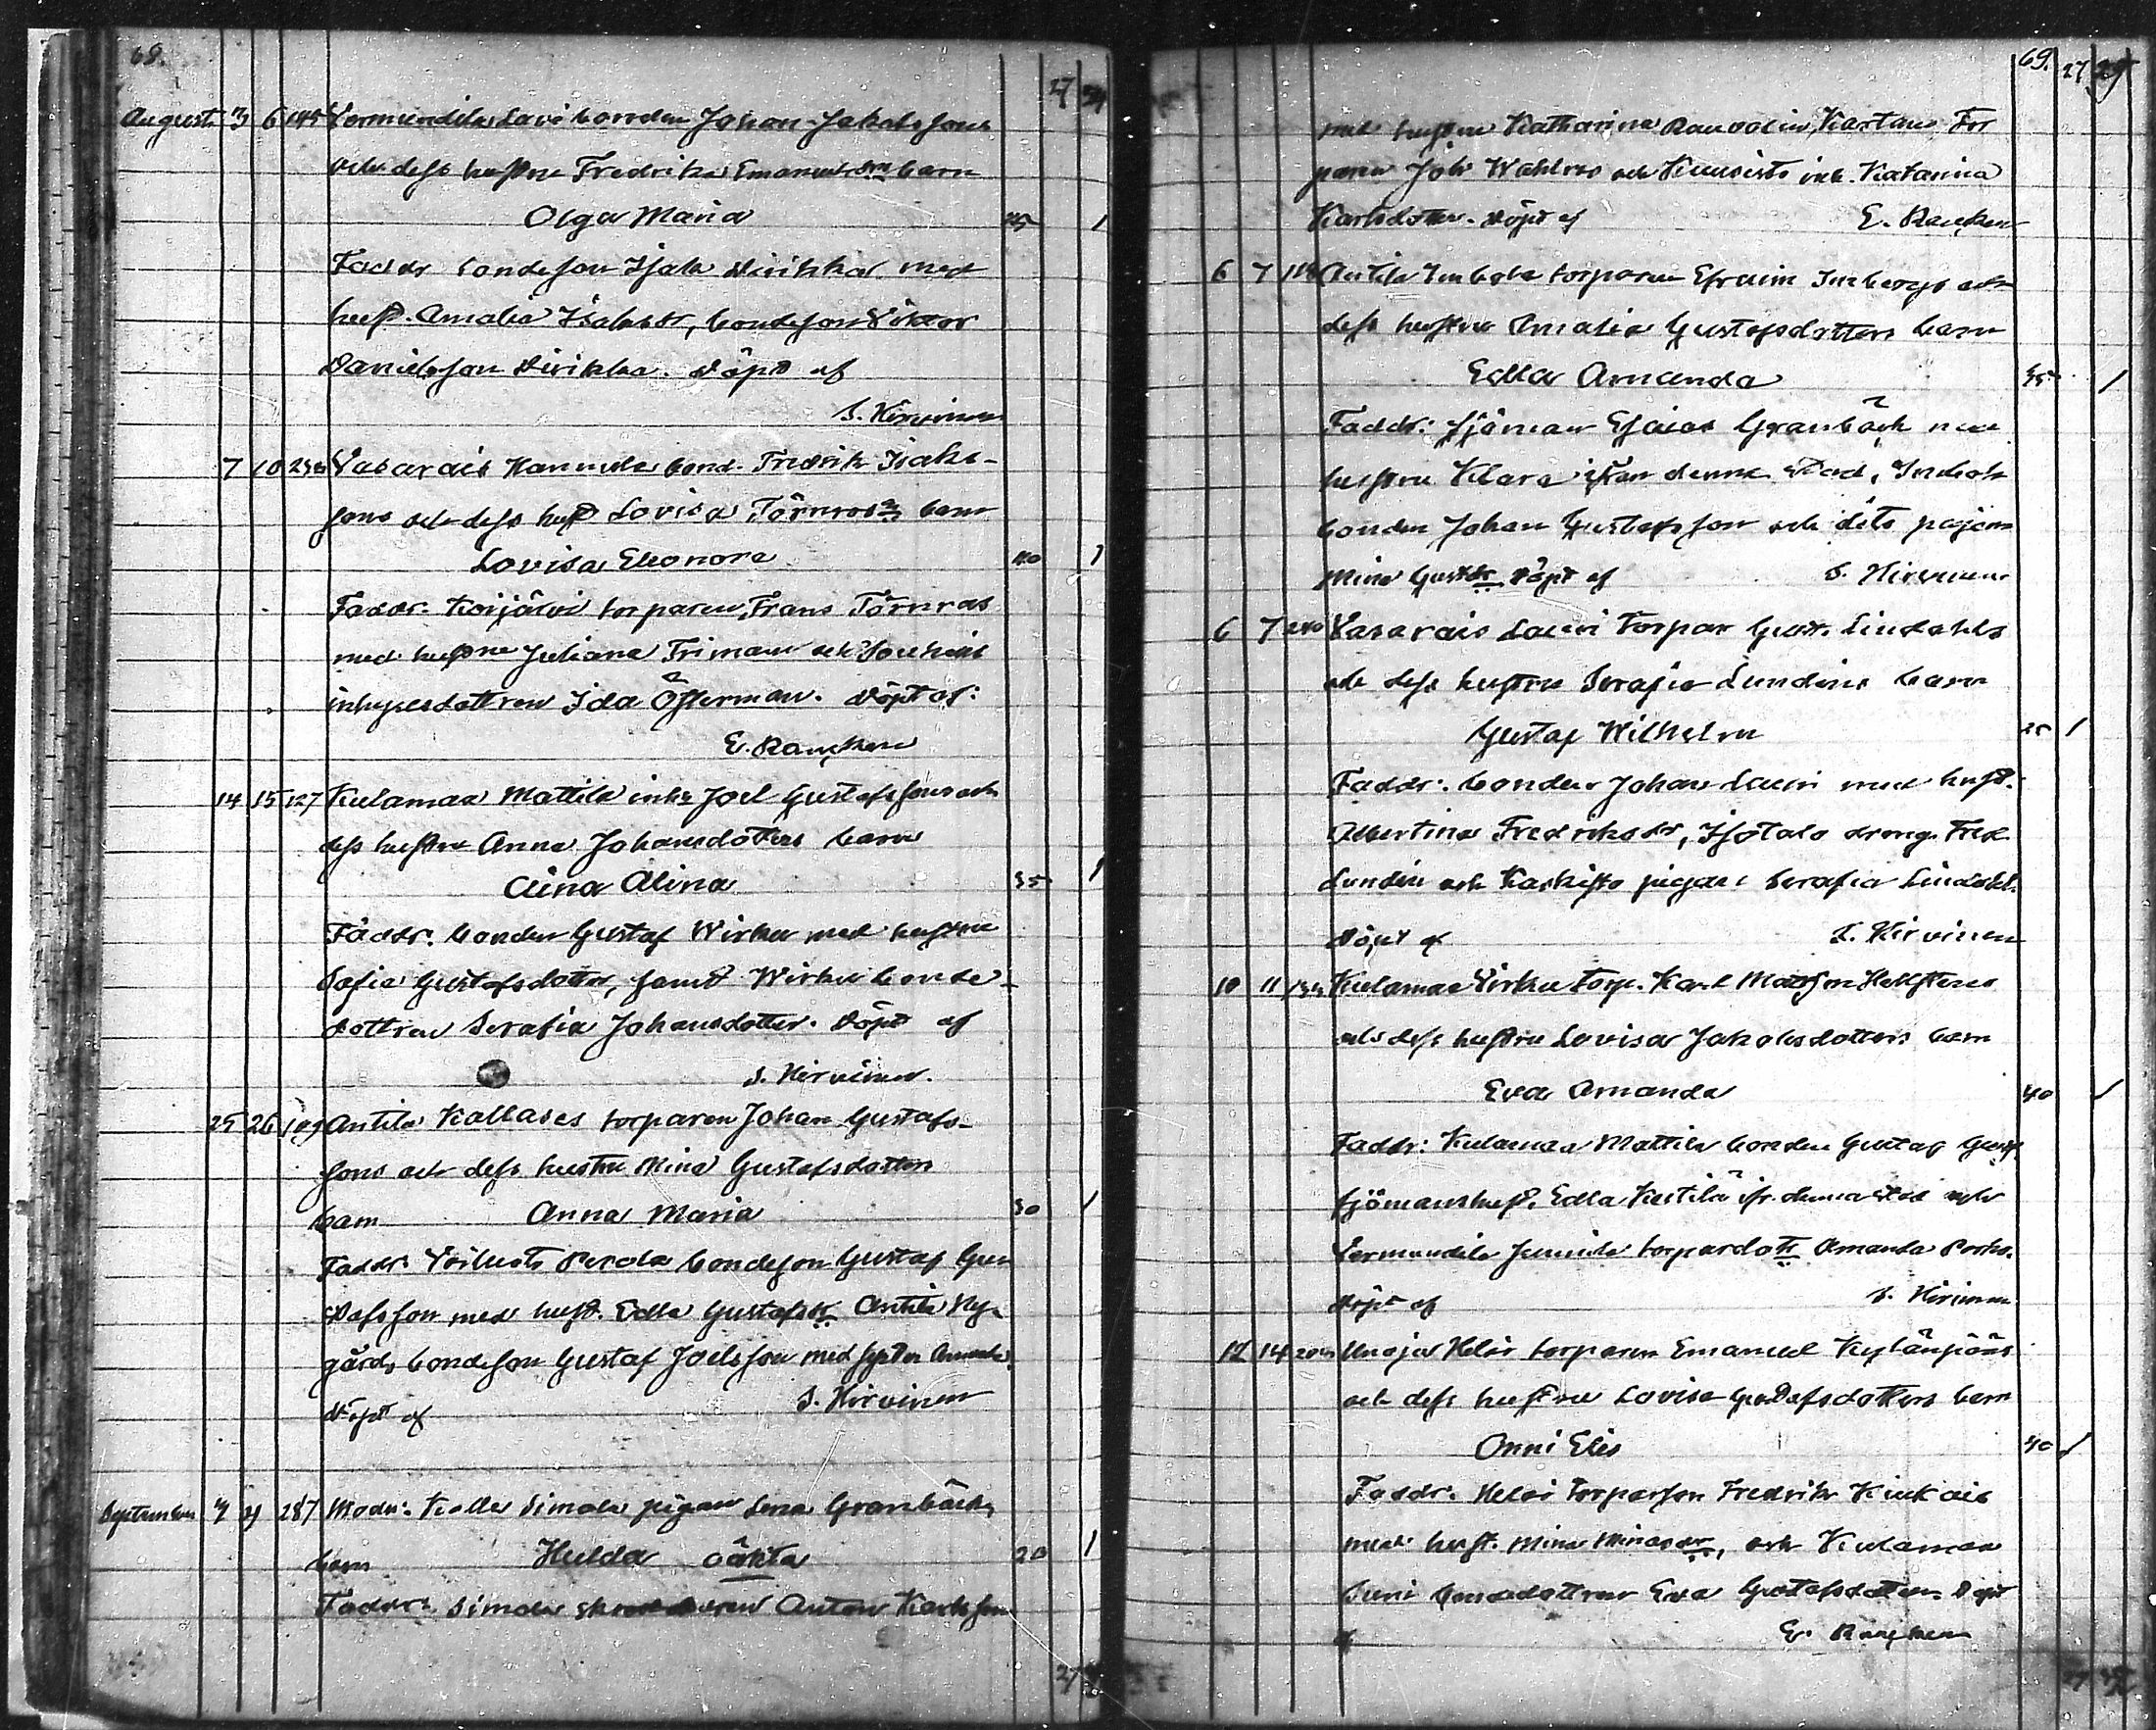 68.
27
August 3 6 145 Vermundila Lavi bonden Johan Jakobssons
och dess hustru Fredrika Emanuelsdrs barn
Olga Maria 25 1
Faddr bondeson Isak Dirikkal med
hust. Amalia Isaksdr, bondeson Viktor
Danielsson Dirikka. Döpt af
S. Hirvinen
7 10 Vasarais Hannula bond. Fredrik Isaks-
sons och dess hust Lovisa Törnroos barn
Lovisa Eleonora 40 1
Faddr. Koijärvi torparen Frans Törnroos
med hustru Juliana Friman och
inhysesdottren Ida Österman. Döpt af:
E. Rancken
14 15 127 Kulamaa Mattila inhs Joel Gustafssons och
dess hustru Anna Johansdotters barn
Aina Alina 35 1
Faddr. bonden Gustaf Wirku med hustru
Sofia Gustafsdotter, samt Wirku bonde-
dottren Serafia Johansdotter. Döpt af
S. Hirvinen.
25 26 109 Antila Kallases torparen Johan Gustafs-
sons och dess hustru Mina Gustafsdotters
barn Anna Maria 30 1
Faddr: Perola bondeson Gustaf Gu
stafsson med hust. Edla Gustafsdr Antila Ny-
gårds bondeson Gustaf Joelsson med syster Amanda.
Döpt af S. Hirvinen
September 4 9 287 Modr: Kalla Simola pigan Lena Granbäcks
barn Hulda oäkta 20 1
Faddr: Simola Anton Karlsson
27
69. 27 29
med hustru Katharina Kartano Tor
paren Joh Wahlroos och Kuusisto inh. Katarina
Karlsdotter. Döpt af E. Rancken
6 7 Antila Inberg torparen Efraim Inbergs och
dess hustru Amalia Gustafsdotters barn
Edla Amanda 35 1
Faddr: sjöman Esaias Granbäck med
hustru Klara ifrån denna stad,
bonden Johan Gustafsson och pigan
Mina Gustdr Döpt af S. Hirvinen
6 7 240 Vasarais Lauri Torpar Gust. Lindahls
och dess hustru Serafia Lundins barn
Gustaf Wilhelm 25 1
Faddr: bonden Johan Lauri med hust.
Albertina Fredriksdr, Isotalo dreng Fred.
Lundin och pigan Serafia Lindahl.
Döpt af S. Hirvinen
10 11 Kulamaa Virku torp. Karl Matsson Hellstens
och dess hustru Lovisa Jakobsdotters barn
Eva Amanda 40 1
Faddr: Kulamaa Mattila bonden Gustaf
sjömanshust. Edla Kestilä ifr. denna stad och
Vermundila Junnila torpardottr Amanda
Döpt af S. Hirvinen
12 14 Unaja Heloi torparen Emanuel Kylänpääs
och dess hustru Lovisa Gustafsdotters barn
Onni Elis 40 1
Faddr. Heloi torparson Fredrik
med hust. Mina och Kulamaa
Suni bondedottren Eva Gustafsdotter. Döpt
af E. Rancken